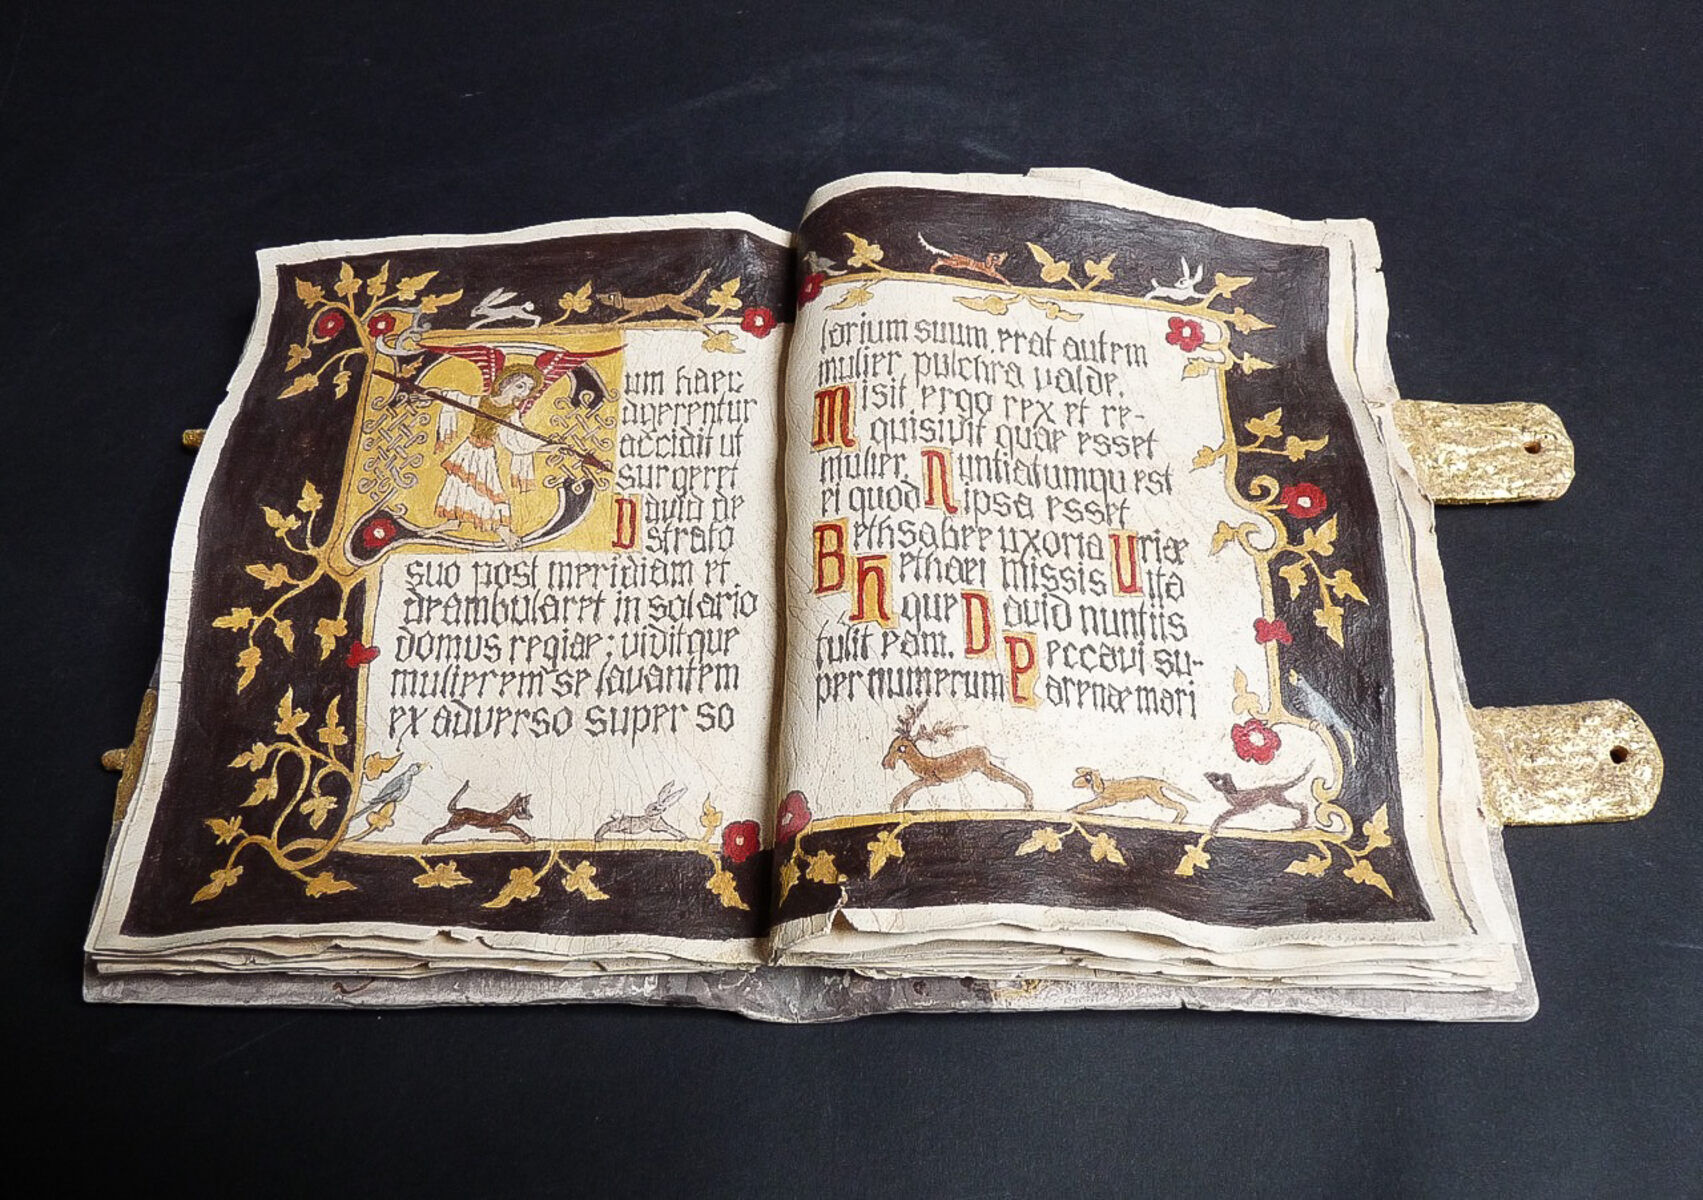 Dum haec
agerentur
accidit ut
surgeret
David de
strato
suo post meridiam et
deambularet in solario
domus regiae; viditque
mulierem se lavantem
ex adverso super so
larium suum. erat autem
mulier pulchra valde.
Misit ergo rex et re-
quisivit quae esset
mulier. Nuntiatumqu est
ei quod ipsa esset
Bethsabee uxoria Uriæ
hethaei missis ita
que David nuntiis
tulit eam. Peccavi su-
per numerum arenæ mari